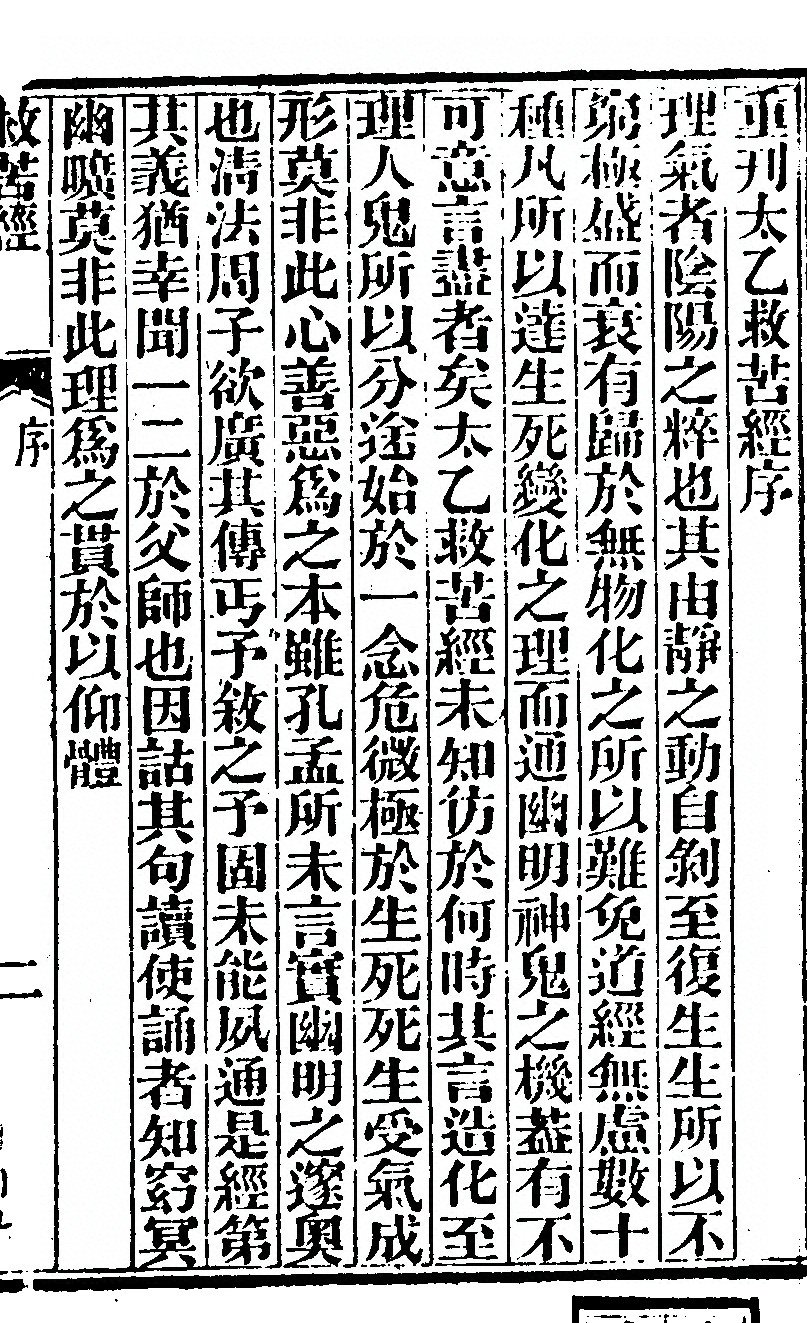 重刊太乙救苦經序
理氣者陰陽之粹也其由靜之動自剝至復生生所以不
窮極盛而衰有歸於無物化之所以難免道經無慮數十
種凡所以達生死變化之理而通幽明神鬼之機葢有不
可意言盡者矣太乙救苦經未知仿於何時其言造化至
理人鬼所以分途始於一念危微極於生死死生受氣成
形莫非此心善惡爲之本雖孔孟所未言實幽明之邃奧
也淸法周子欲廣其傳丐予敘之予固未能夙通是經第
其義猶幸聞一二於父師也因詁其句讀使誦者知窈冥
幽曠莫非此理爲之貫於以仰體
救苦經
序
二